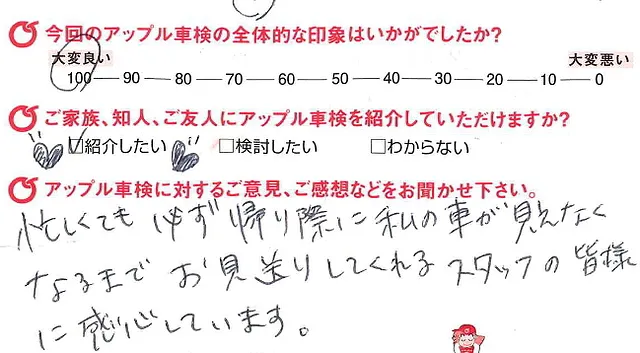 今回のアップル車検の全体的な印象はいかがでしたか?
大変良い 大変悪い
100 90 80 70 60 50 40 30 20 10 0
ご家族、知人、ご友人にアップル車検を紹介していただけますか?
☑紹介したい □検討したい □わからない
アップル車検に対するご意見、ご感想などをお聞かせ下さい。
忙しくても必ず帰り際に私の車が見えなく
なるまでお見送りしてくれるスタッフの皆様
に感心しています。